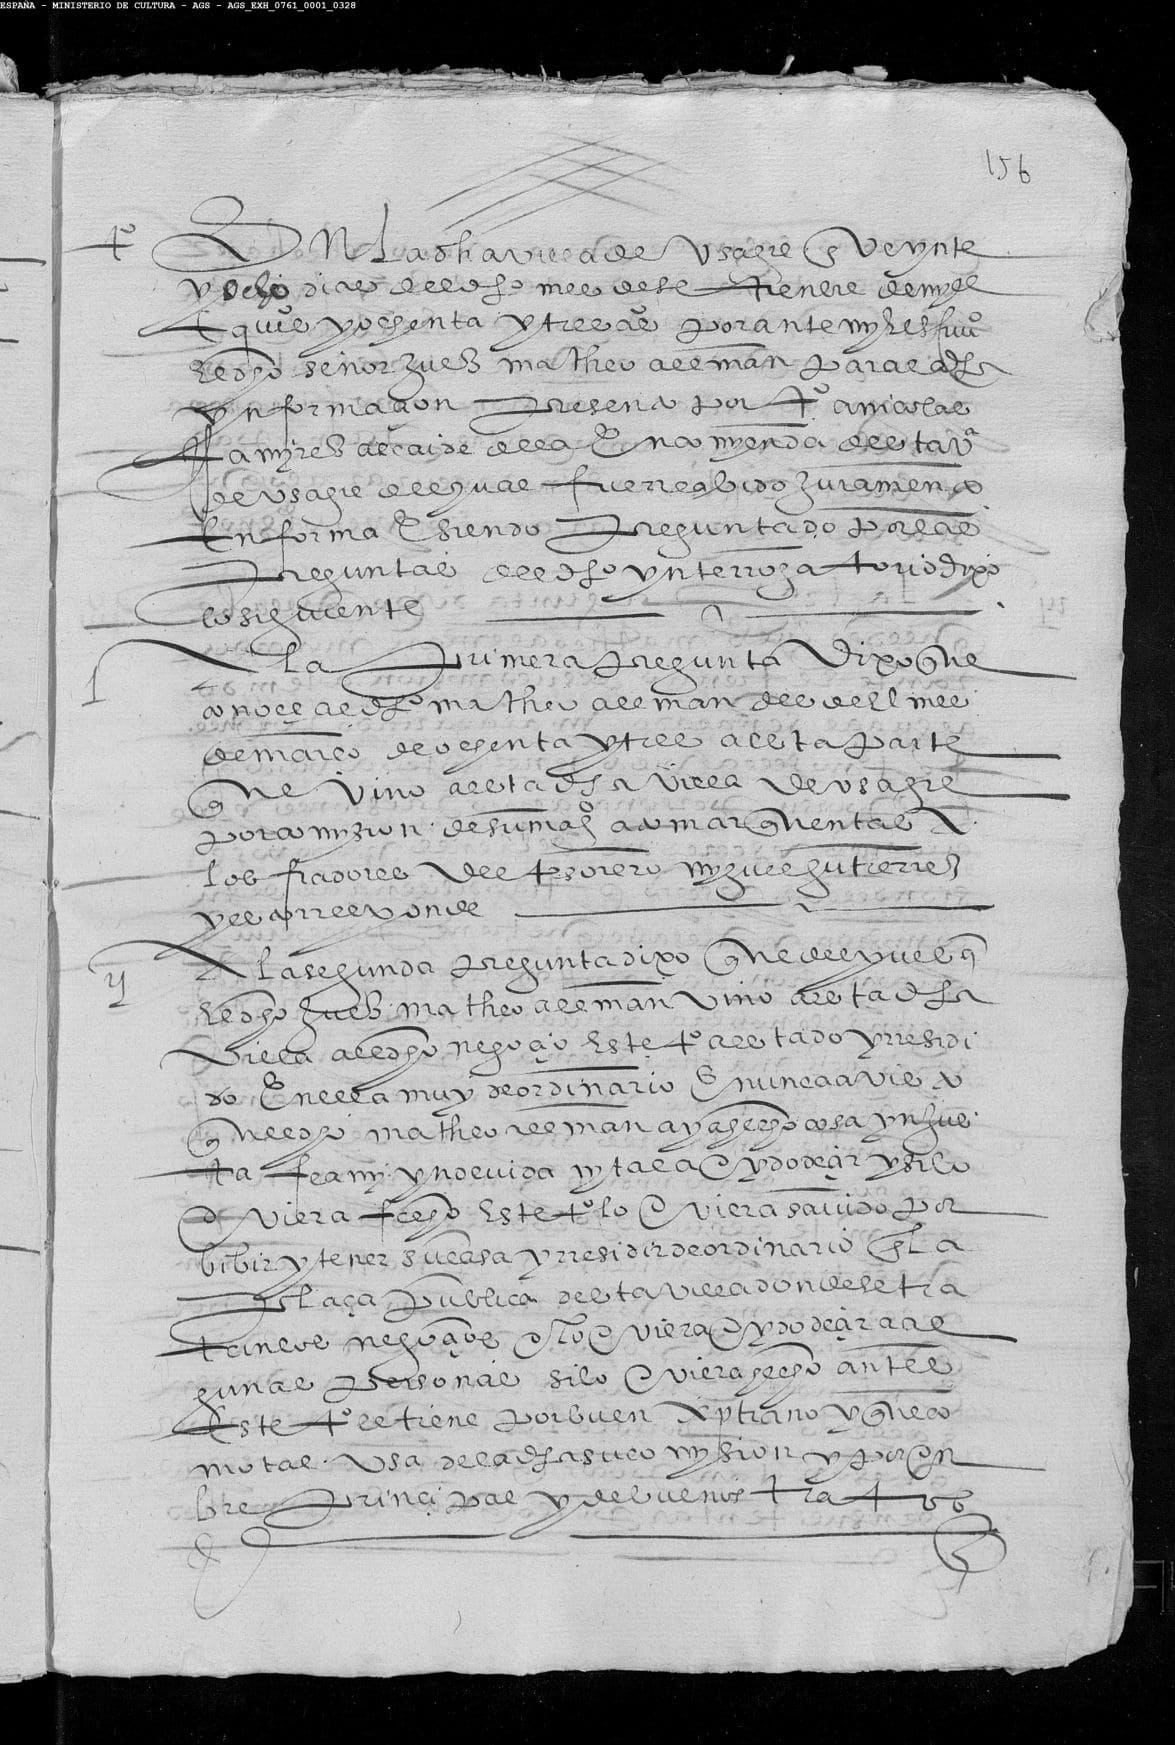 ESPAÑA - MINISTERIO DE CULTURA - AGS - AGS_EXH_0761_0001_0328
156
tº
En la dha villa de Usagre en veynte
y ocho dias del dho mes de setienbre de mill
e quios y ochenta y tres aºs por ante my el
el dho señor juez matheo aleman para la dha
ynformaçion presento por tº a nicolas
Ramyrez alcaide de la Encomyenda desta vª
de usagre del qual fue rreçebido juramento
en forma E siendo preguntado por las
preguntas del dho ynterrogatorio dixo
lo siguiente
1
A la primera pregunta dixo que
conoçe al dho matheo aleman desde el mes
de março de ochenta y tres a esta parte
que vino a esta dha villa de usagre
por comysion de su magd a tomar quentas A
los fiadores del tesorero myguel gutierrez
y esto rresponde
ij
A la segunda pregunta dixo que despues q
el dho juez matheo aleman vino a esta dha
villa al dho negoçio este tº a estado y rresidi
do En ella muy de ordinario E nunca a visto
que el dho matheo aleman aya hecho cosa ynjus
ta fea ny yndevida ny tal a oydo deçir y si lo
oviera fecho este tº lo oviera savido por
bibir y tener su casa y rresidir de ordinario En la
plaça publica desta villa donde se tra
tan los negoçios o lo oviera oydo deçir a al
gunas personas si lo oviera hecho antes
este tº le tiene por buen xptiano y que co
mo tal usa de la dha su comysion y por on
bre prinçipal y de buenos tratos